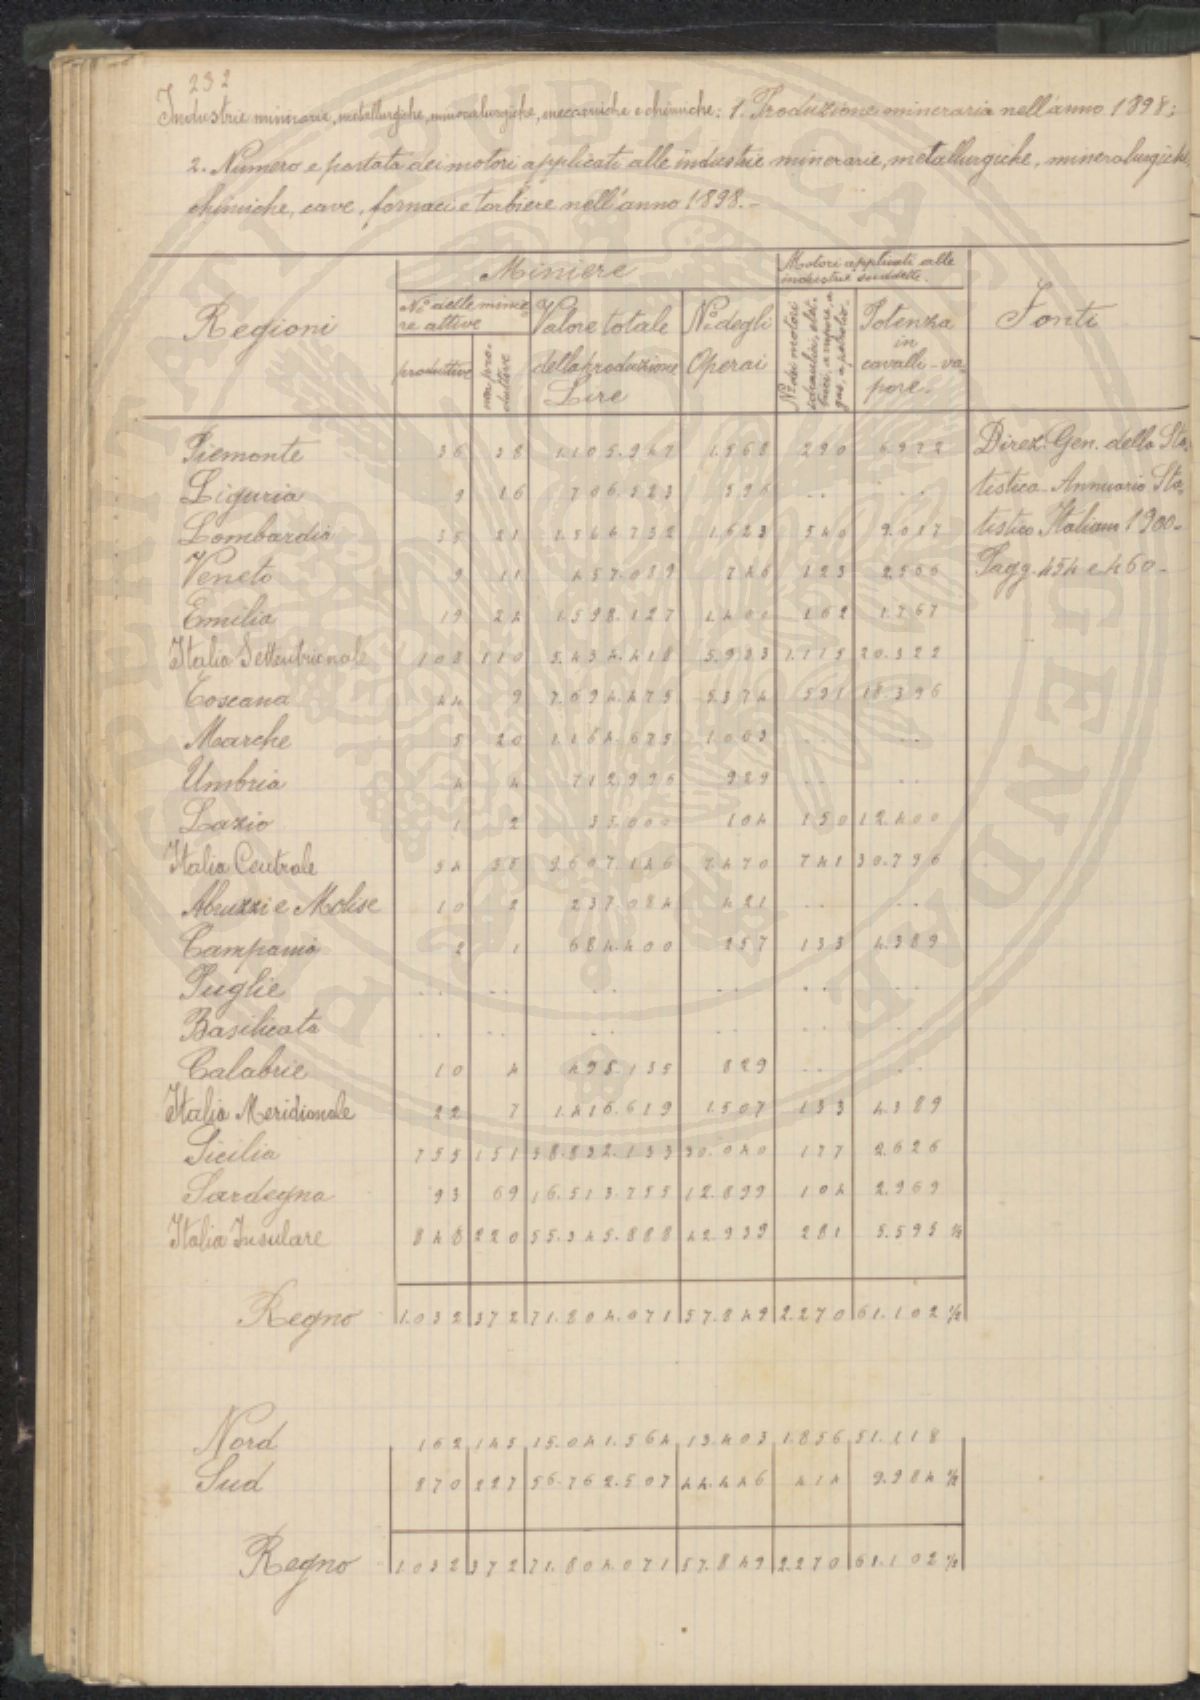 232
Industrie minerarie, metallurgiche, mineralurgiche, meccaniche e chimiche: 1. Produzione mineraria nell'anno 1898;
2. Numero e portata dei motori applicati alle industrie minerarie, metallurgiche, mineralurgiche,
chimiche, cave, fornaci e torbiere nell'anno 1898.-
Regioni
Miniere
No delle minie-
re attive
produttive
non pro-
duttive
Valore totale
della produzione
Lire
No degli
Operai
Motori applicati alle
industrie suddette.
No dei motori
idraulici, elet-
trici, a vapore, a
gas, a petrolio.
Potenza
in
cavalli-va-
pore.
Fonti
Piemonte 36 38 1.105.967 1.568 290 6972
Liguria 9 16 706.523 596 .. ..
Lombardia 35 21 1.566.732 1.623 540 9.017
Veneto 9 11 457.089 746 123 2566
Emilia 19 24 1.598.127 1.400 162 1.767
Italia Settentrionale 108 110 5.434.418 5.933 1.115 20.322
Toscana 44 9 7.694.475 5.374 591 18396
Marche 5 20 1.164.675 1.063 .. ..
Umbria 4 4 712.996 929 .. ..
Lazio 1 2 35.000 104 150 12.400
Italia Centrale 54 35 9.607.146 7.470 741 30.796
Abruzzi e Molise 10 2 237.084 421 .. ..
Campania 2 1 684.400 257 133 4.389
Puglie .. .. .. .. .. ..
Basilicata .. .. .. .. .. ..
Calabrie 10 4 495.135 829 .. ..
Italia Meridionale 22 7 1.416.619 1.507 133 4.389
Sicilia 755 151 38.832.133 30.040 177 2.626
Sardegna 93 69 16.513.755 12.899 104 2.969
Italia Insulare 848 220 55.345.888 42.939 281 5.595 ½
Regno 1.032 372 71.804.071 57.849 2.270 61.102 ½
Direz. Gen. della Sta-
tistica - Annuario Sta-
tistico Italiano 1900-
Pagg. 454 e 460-
Nord 162 145 15.041.564 13.403 1.856 51.118
Sud 870 227 56.762.507 44.446 414 9.984 ½
Regno 1032 372 71.804.071 57.849 2.270 61.102 ½